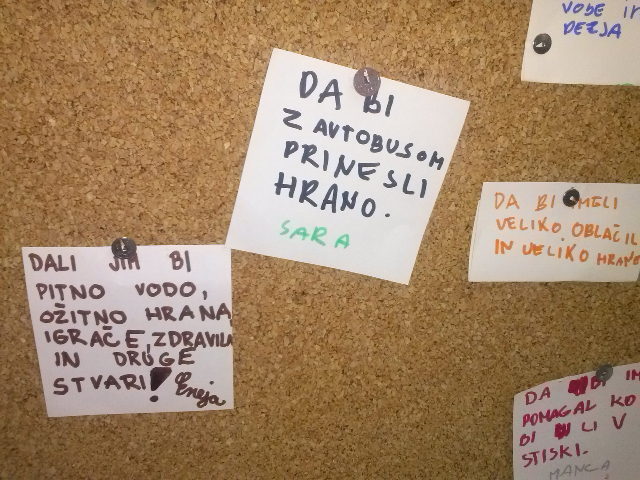 VODE IN
DEŽJA
DA BI
Z AVTOBUSOM
PRINESLI
HRANO.
SARA
DA BI IMELI
VELIKO OBLAČIL
IN VELIKO HRANE
DALI JIM BI
PITNO VODO,
OŽITNO HRANA,
IGRAČE, ZDRAVILA
IN DRUGE
STVARI! Eneja
DA BI IM
POMAGAL KO
BI LI V
STISKI.
MANCA